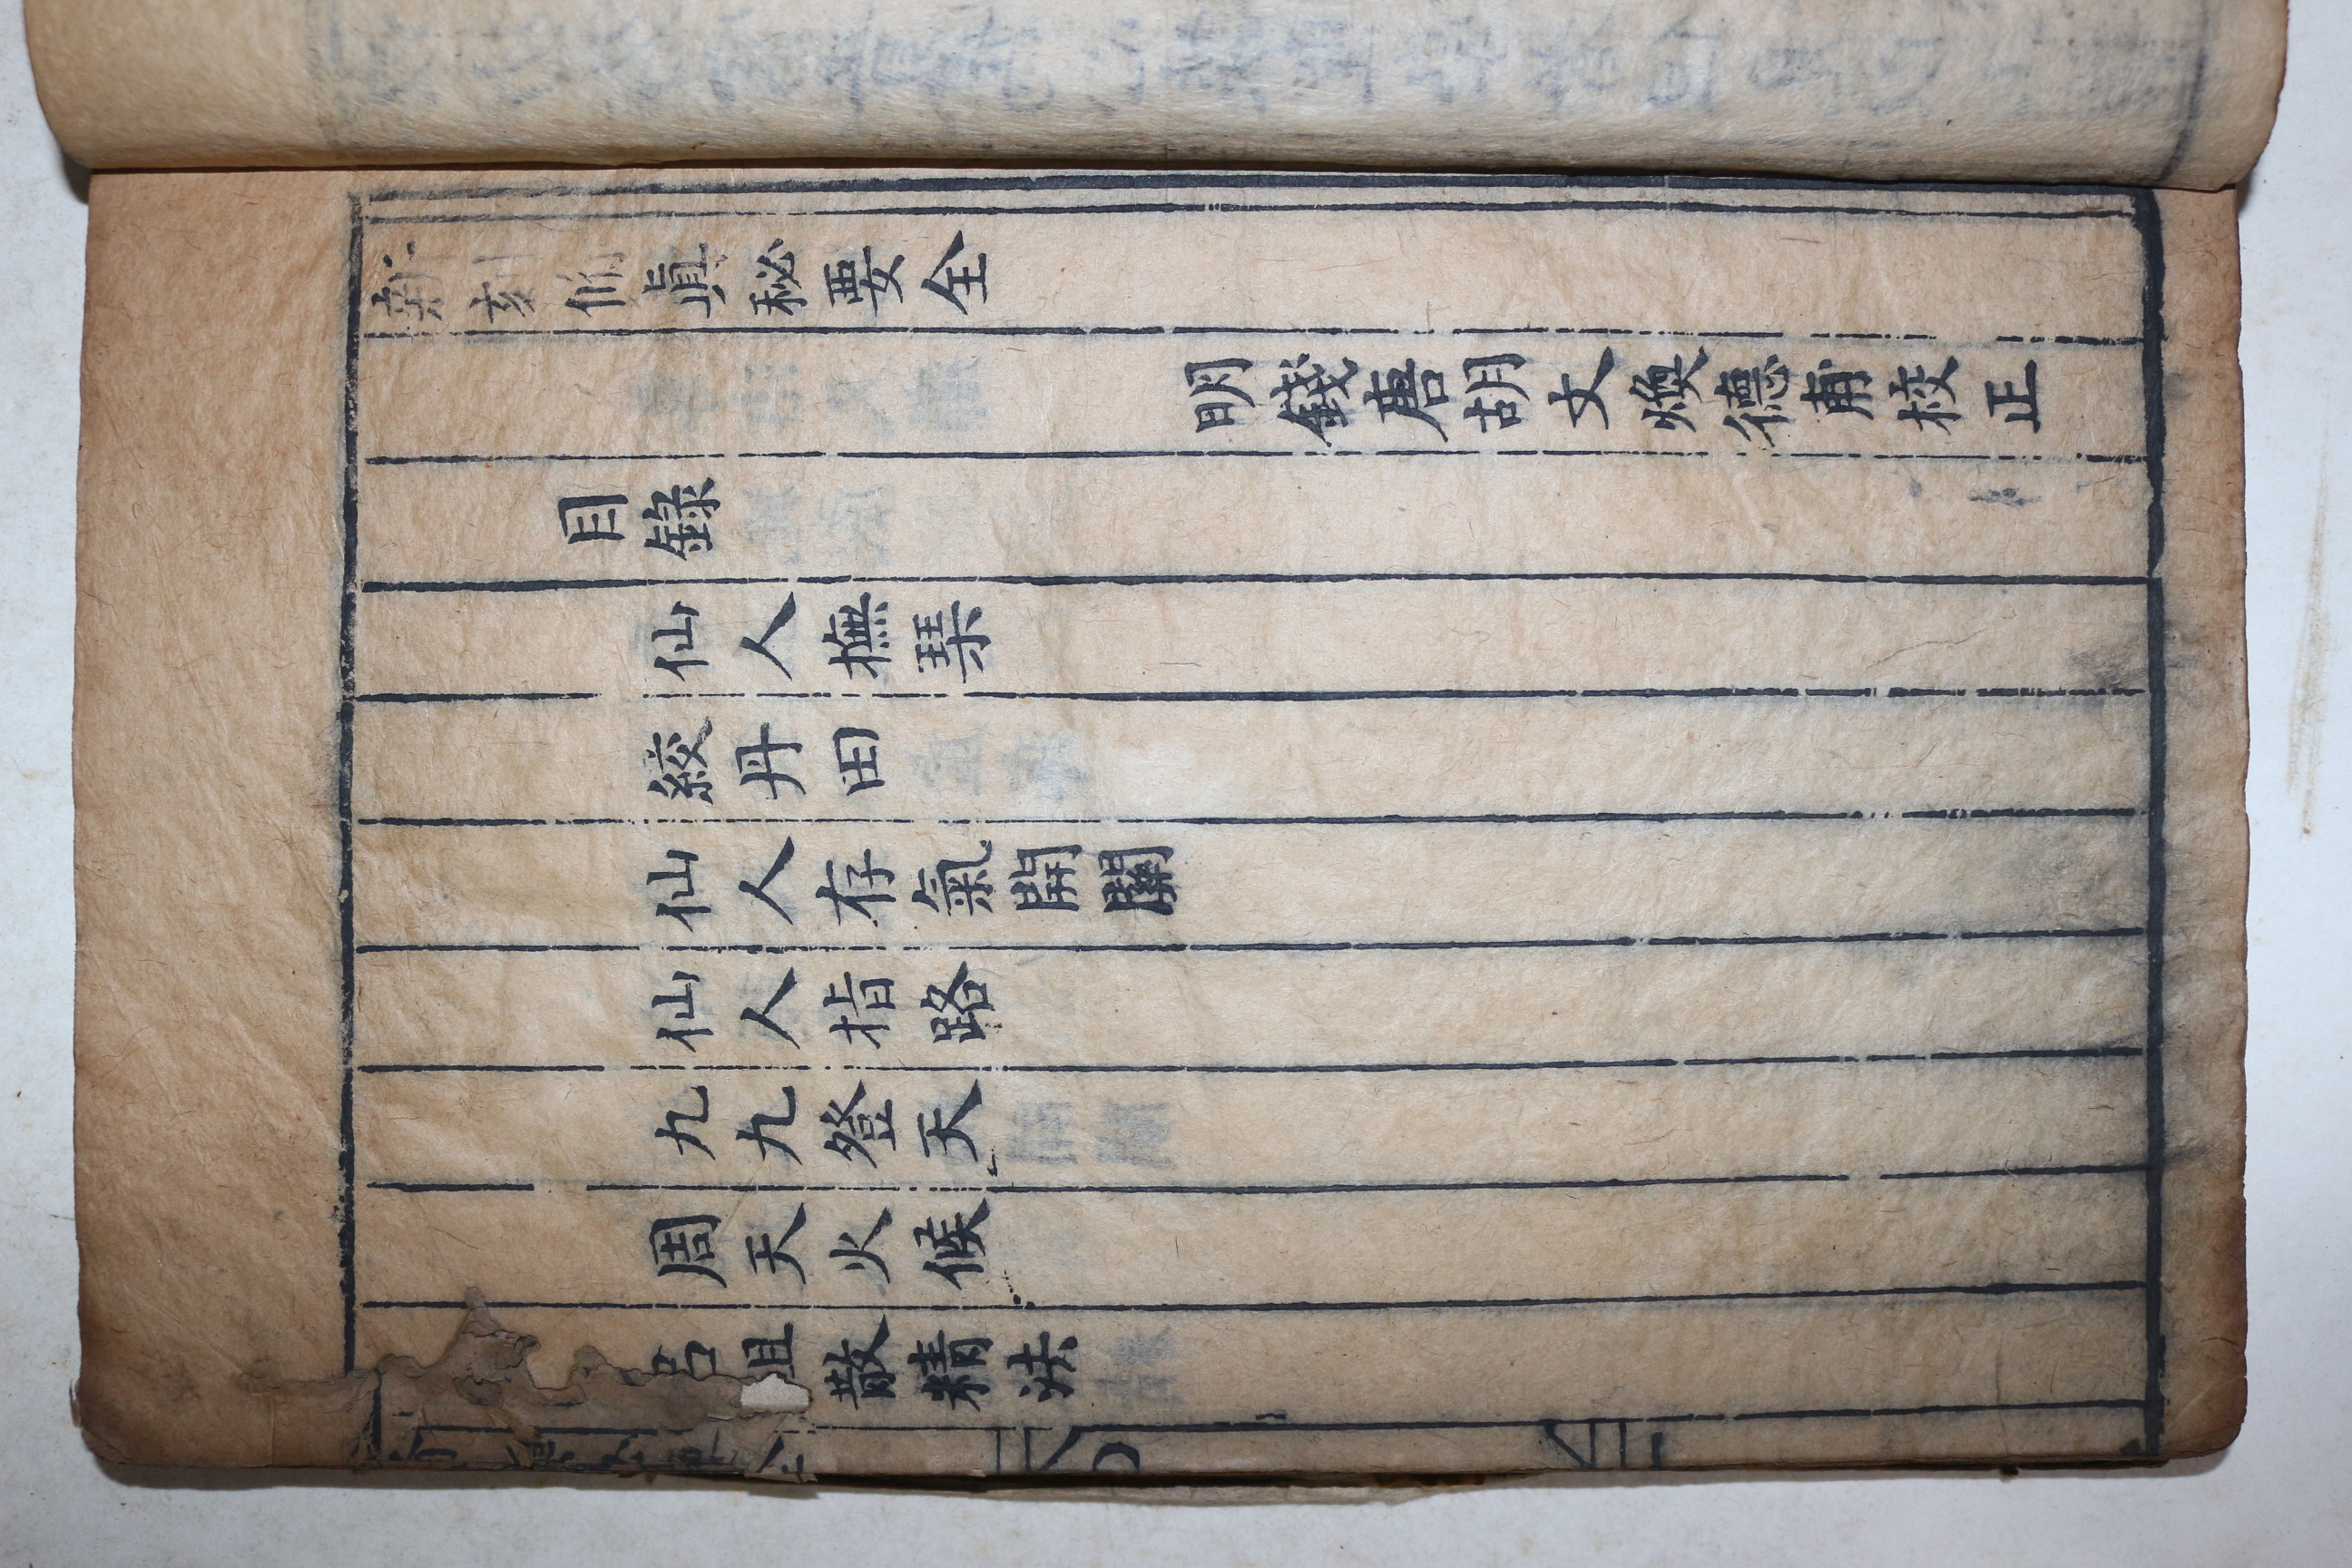 新刻修眞秘要全
明錢唐胡文煥德甫校正
目錄
仙人撫琴
絞丹田
仙人存氣開關
仙人指路
九九登天
周天火候
呂祖散精法